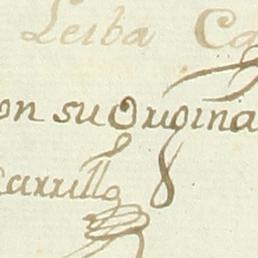 Leiba Ca
on su Origina
Carrillo